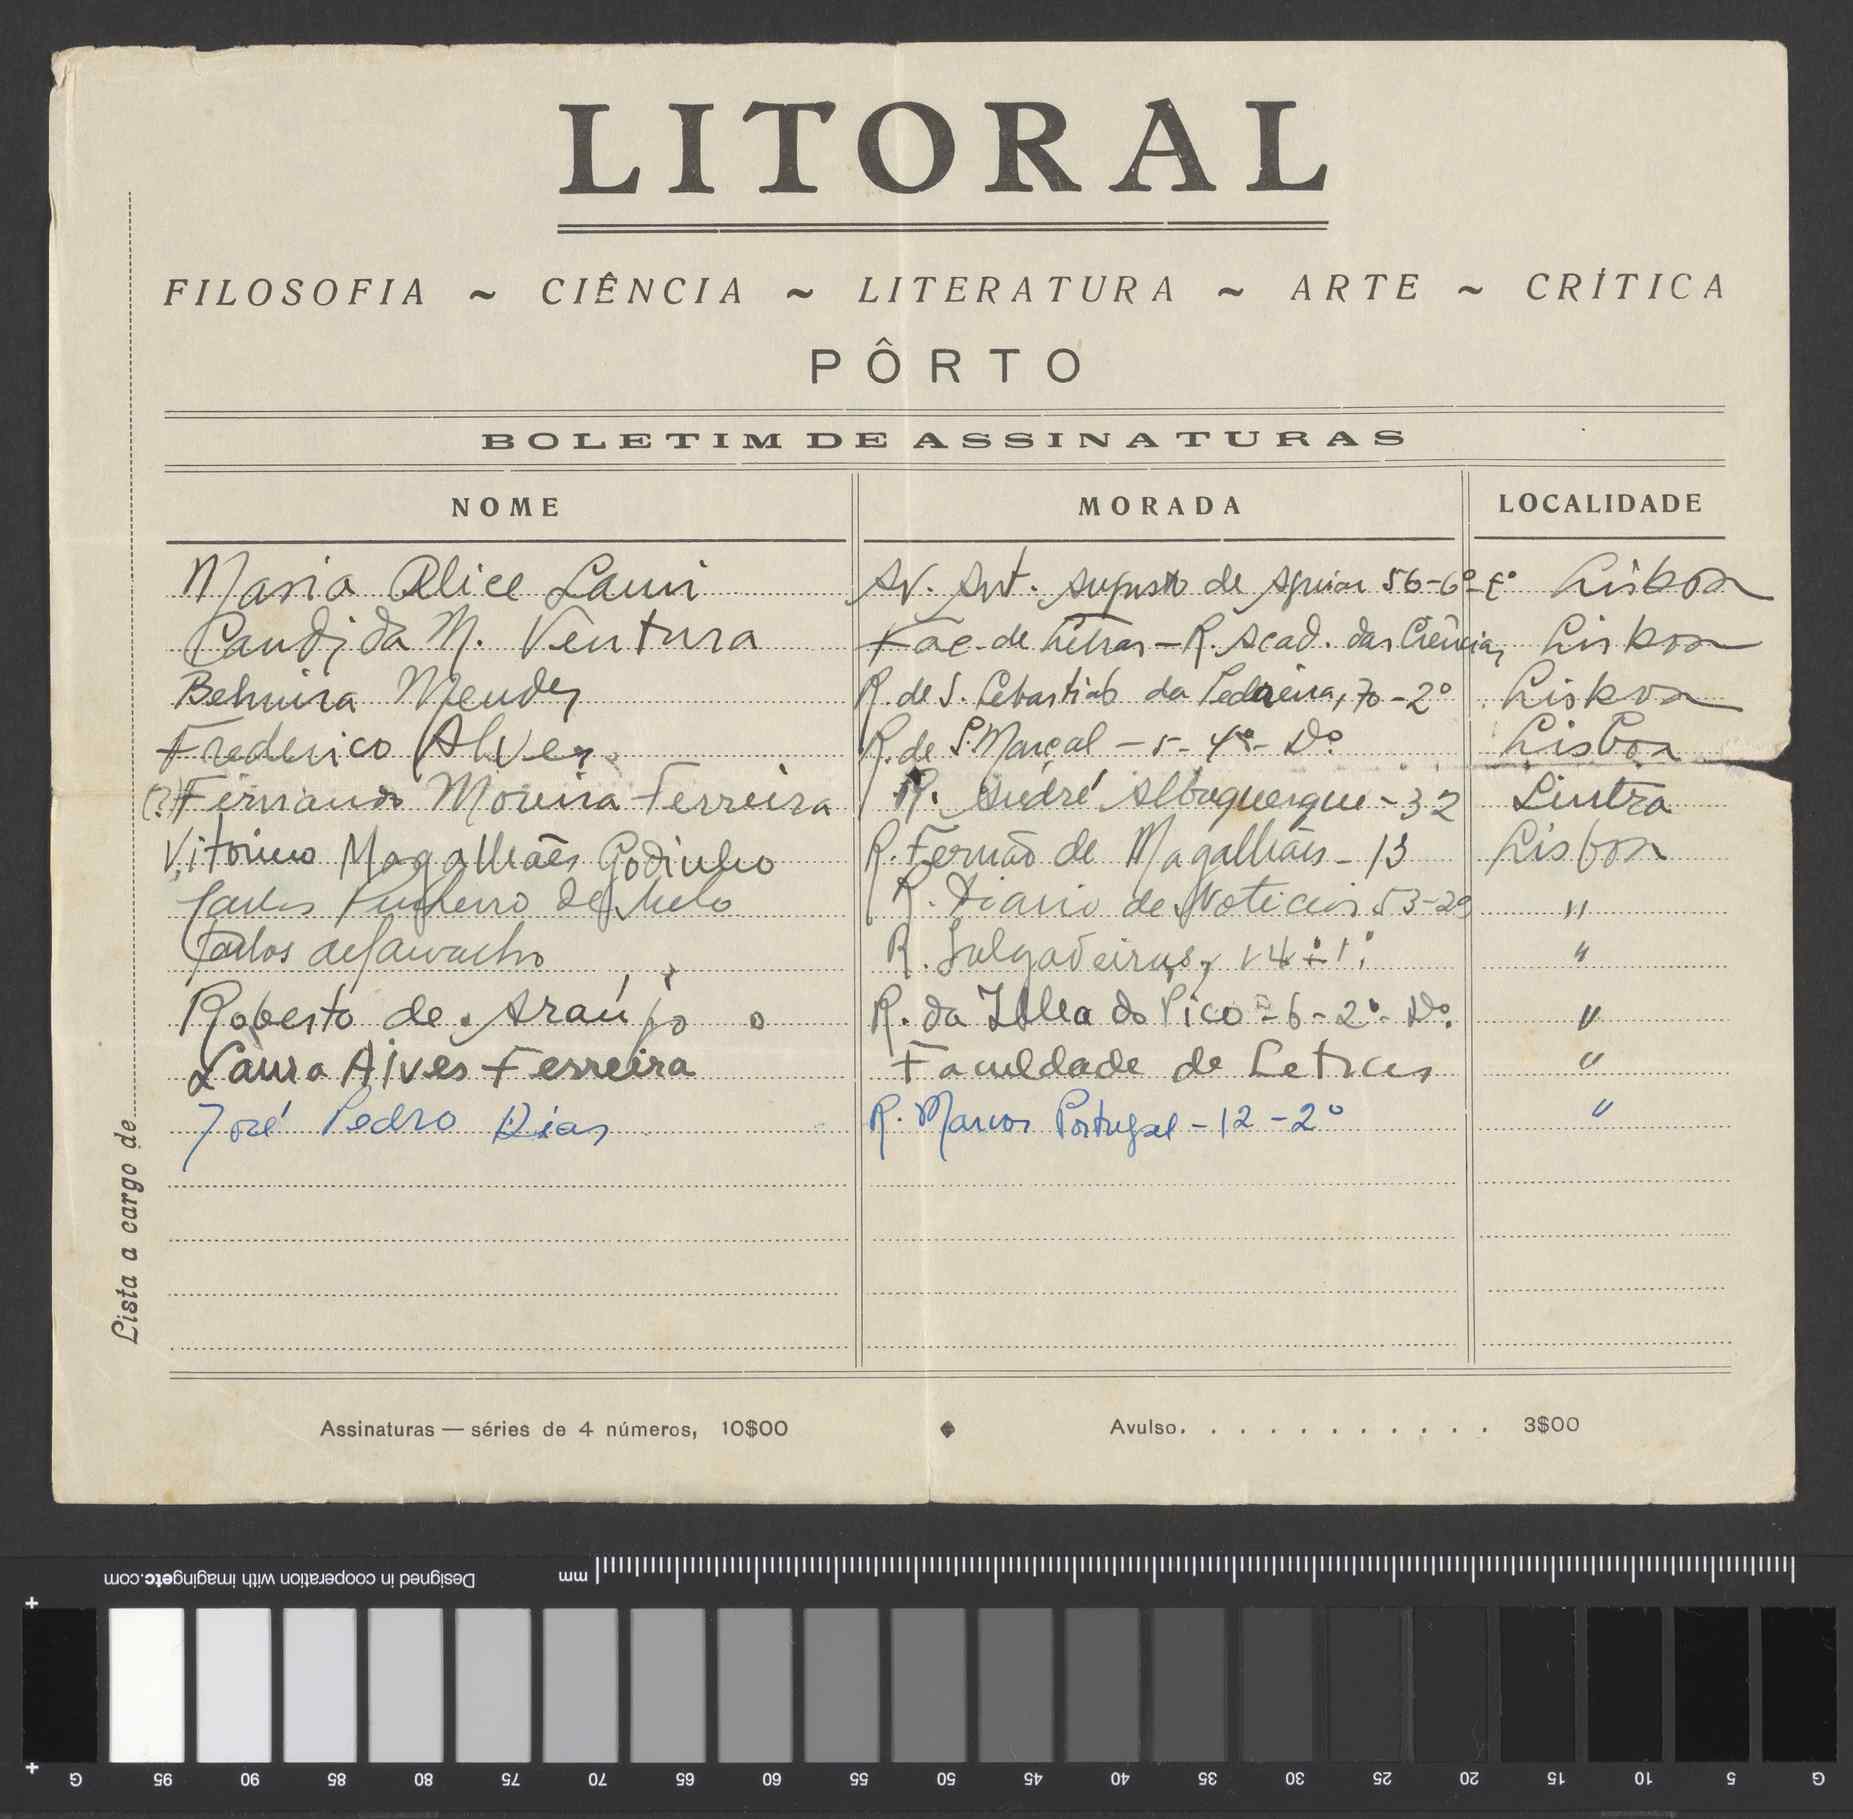 LITORAL
FILOSOFIA ~ CIÊNCIA ~ LITERATURA ~ ARTE ~ CRÍTICA
PÔRTO
BOLETIM DE ASSINATURAS
NOME MORADA LOCALIDADE
Maria Alice Lami Av. Ant. Augusto de Aguiar 56-6º-E° Lisboa
Candida M. Ventura Fac. de Letras - R. Acad. das Ciências Lisboa
Belmira Mendes R. de S. Sebastião da Pedreira, 70-2º Lisboa
Frederico Alves R. de S. Marçal - 5 - 4º - Dº Lisboa
(?) Fernando Moreira Ferreira R. André Albuquerque - 32 Sintra
Vitorino Magalhães Godinho R. Fernão de Magalhães - 13 Lisboa
Carlos de Melo R. Diario de Noticias 53-2º "
Carlos de Carvalho R. Salgadeiras, 14-1º "
Roberto de Araújo R. da Ilha do Pico - 6 - 2º - Dº. "
Laura Alves Ferreira Faculdade de Letras "
José Pedro Dias R. Marcos Portugal - 12 - 2º "
Lista a cargo de
Assinaturas — séries de 4 números, 10$00 Avulso. . . . . . . . . . . . 3$00
Designed in cooperation with imagingetc.com
mm
G 95 90 85 80 75 70 65 60 55 50 45 40 35 30 25 20 15 10 5 G